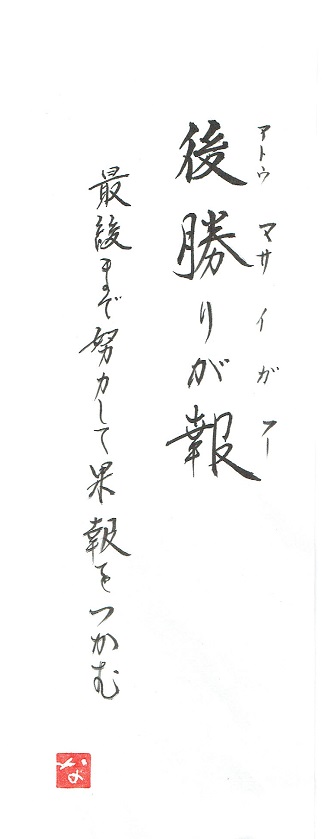 アトゥ マサイ ガ フー
後勝りが報
最後まで努力して果報をつかむ
な